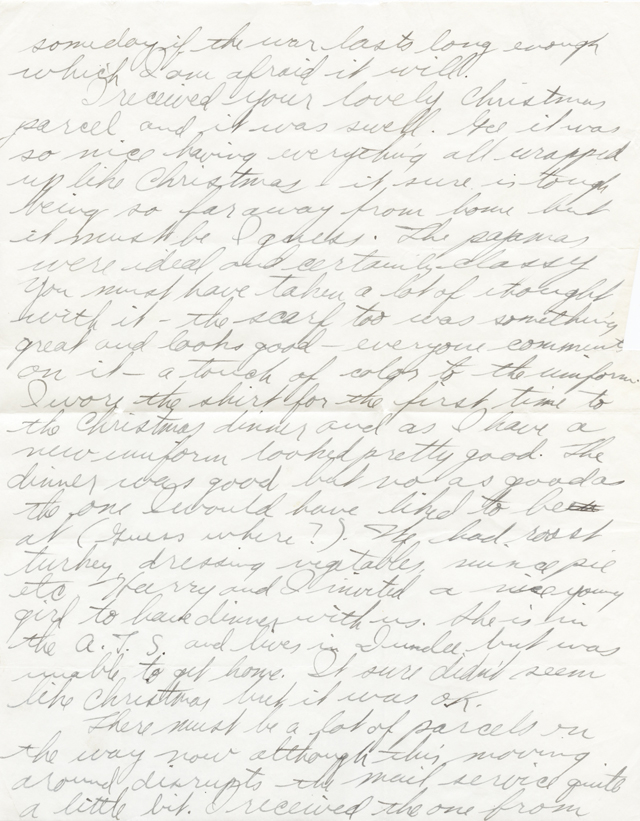 someday if the war lasts long enough
which I am afraid it will.
I received your lovely Christmas
parcel and it was swell. Gee it was
so nice having everything all wrapped
up like Christmas - it sure is tough
being so far away from home but
it must be I guess. The pajamas
were ideal and certainly classy
You must have taken a lot of thought
with it - the scarf too was something
great and looks good - everyone comments
on it - a touch of color to the uniform
I wore the shirt for the first time to
the Christmas dinner and as I have a
new uniform looked pretty good. The
dinner was good but no as good as
the one I would have liked to be
at (Guess where?). We had roast
turkey, dressing vegetables, mince pie
etc Harry and I invited a nice young
girl to have dinner with us. She is in
the A.T.S. and lives in Dundee but was
unable to get home. It sure didn't seem
like Christmas but it was OK.
There must be a lot of parcels on
the way now although this moving
around disrupts the mail service quite
a little bit. I received the one from